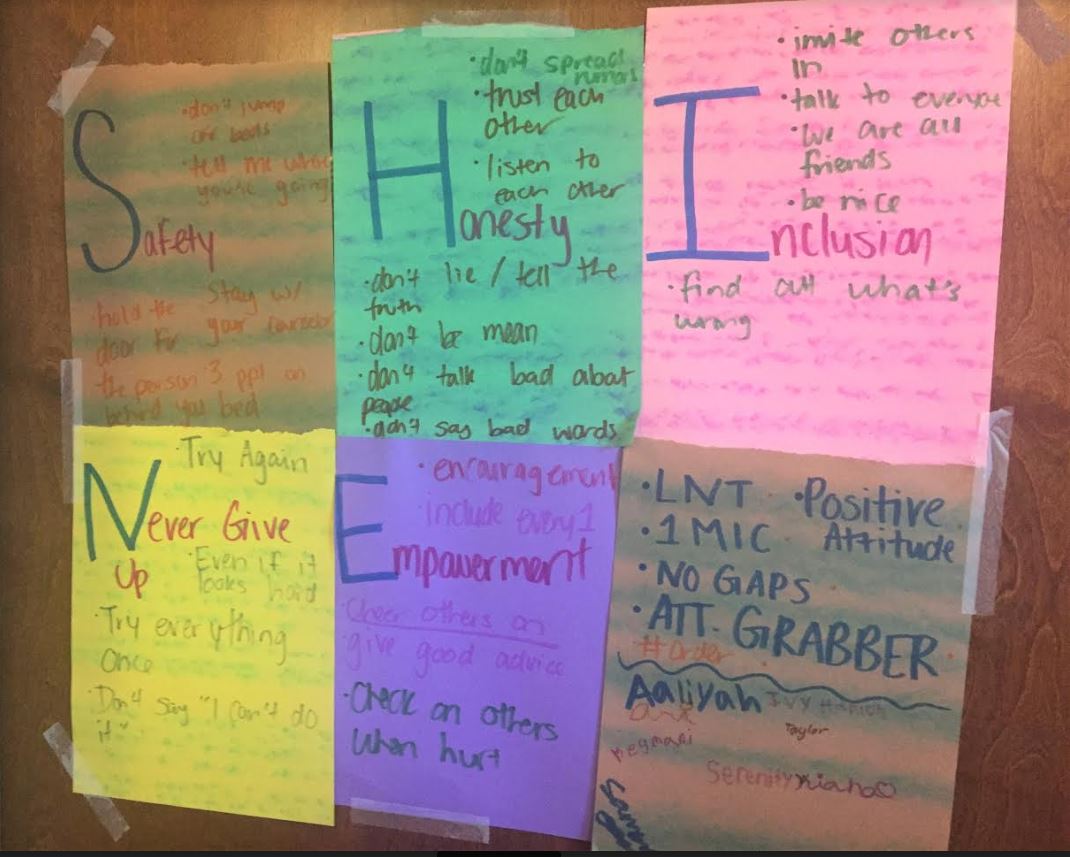 ·don't jump
on beds
·tell me where
you're going
Safety
Stay w/
your counselor
·hold the
door for
the person
behind you
3 ppl on
bed
·don't spread
rumors
·trust each
other
·listen to
each other
Honesty
·don't lie / tell the
truth
·don't be mean
·don't talk bad about
people
·don't say bad words
·invite others
in
·talk to everyone
·We are all
friends
·be nice
Inclusion
·find out what's
wrong
·Try Again
Never Give
Up
·Even if it
looks hard
·Try everything
once
·Don't say "I can't do
it"
·encouragement
include every1
Empowerment
·Cheer others on
give good advice
·Check on others
when hurt
·LNT
·Positive
Attitude
·1 MIC
·NO GAPS
·ATT. GRABBER
#Order
Aaliyah
Ivy
Taylor
Serenity